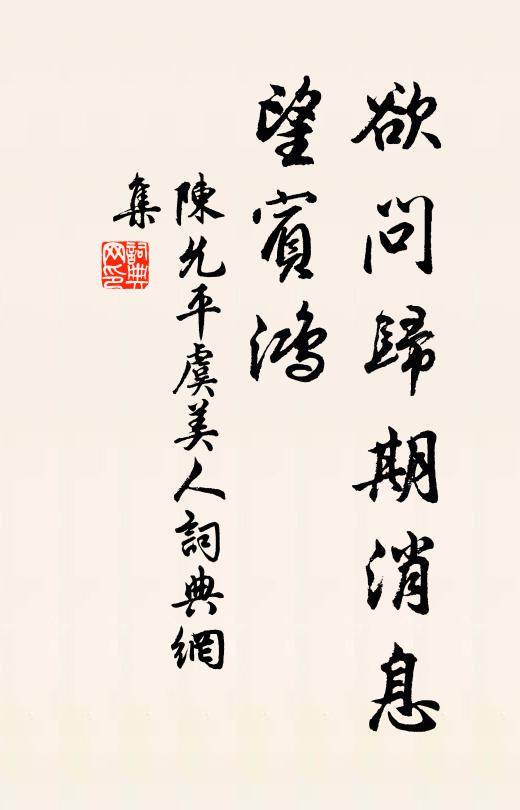 欲問歸期消息
望賓鴻
陳允平虞美人詞典網
集
詞典
网印